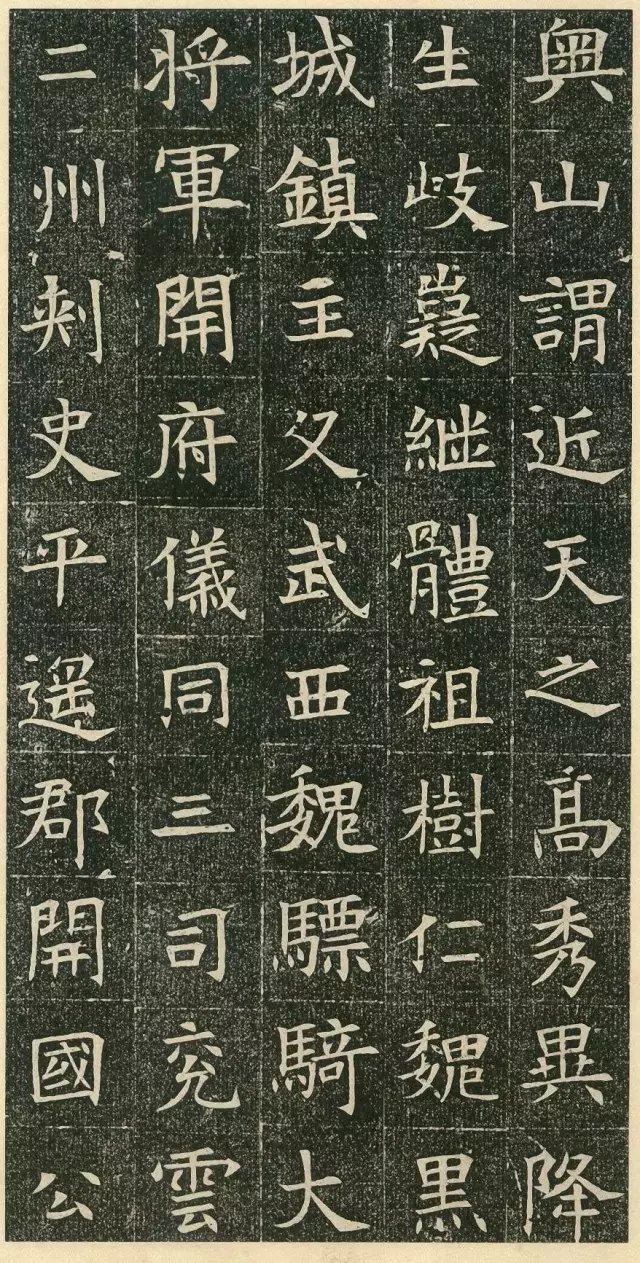 輿山謂近天之高秀異降
生岐嶷繼體祖樹仁魏黑
城鎮主父武西魏驃騎大
將軍開府儀同三司兖雲
二州刺史平遥郡開國公